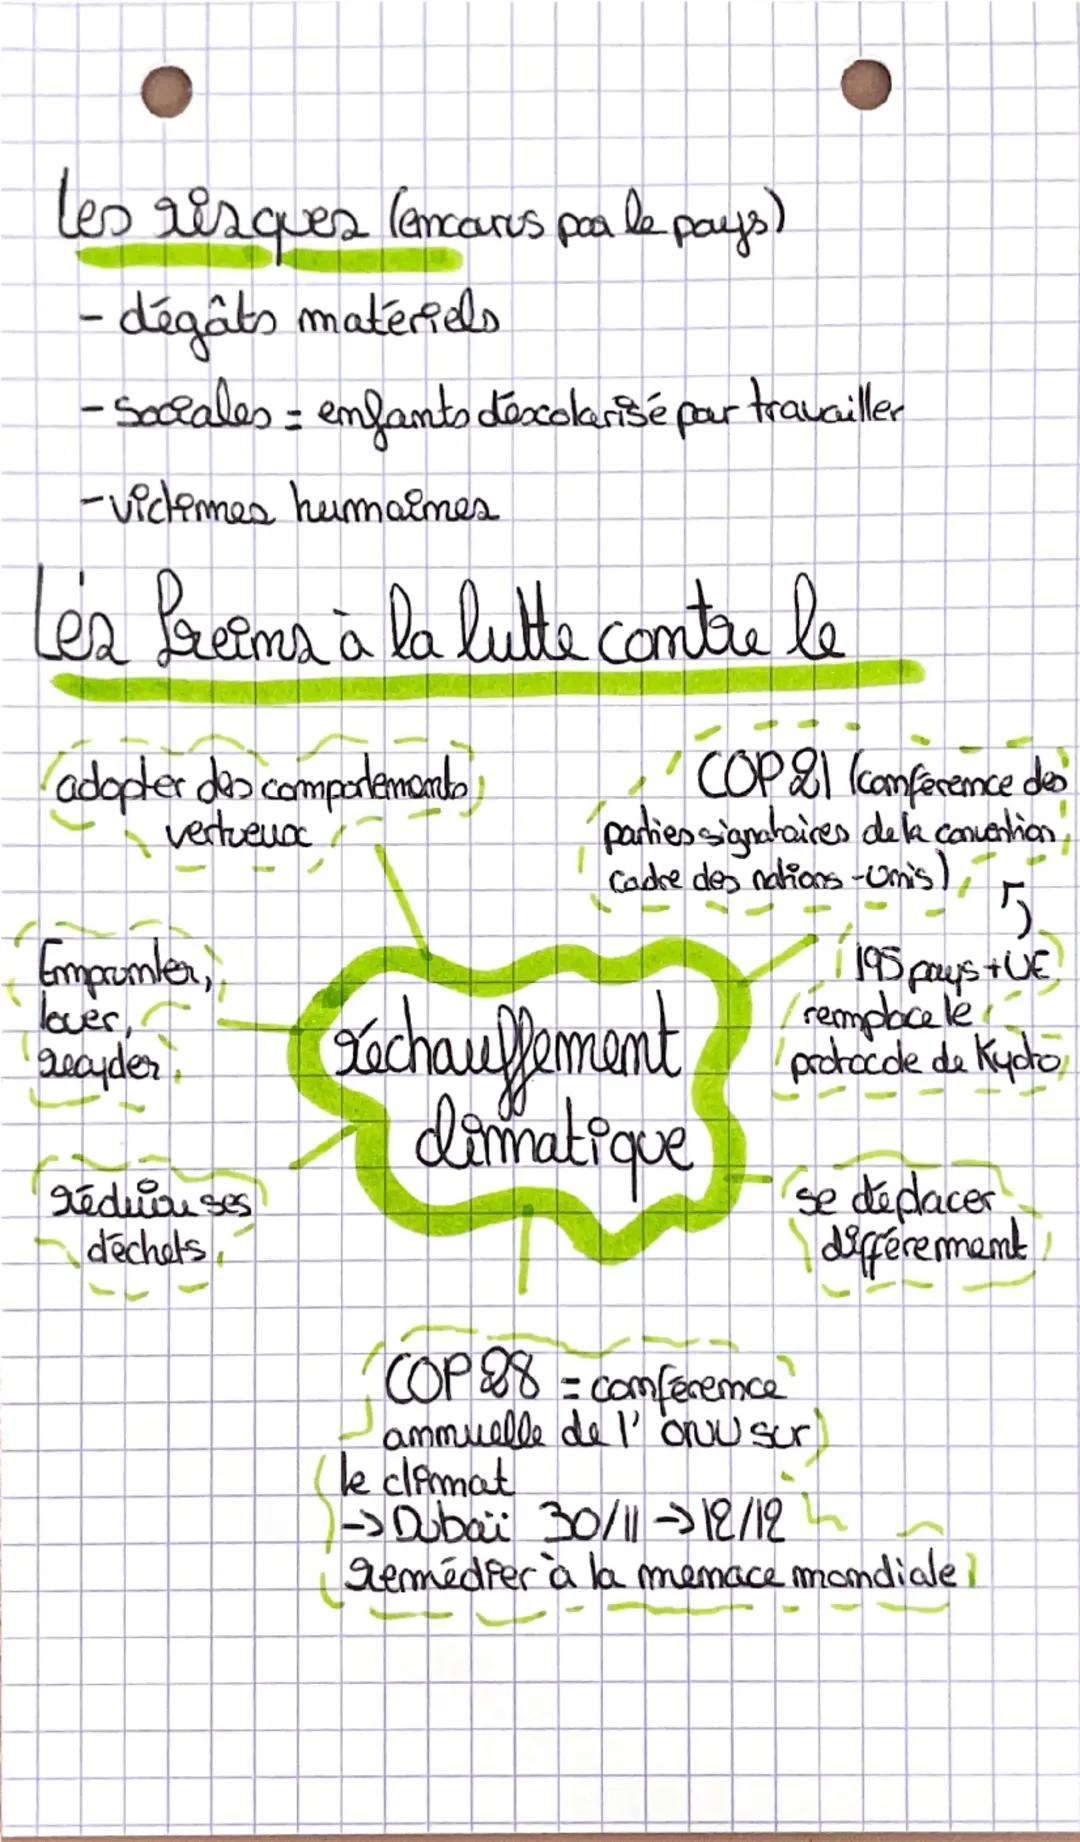 les risques (encourus par le pays)
- dégâts matériels
- sociales = enfants déscolarisé pour travailler
- victimes humaines
Les freins à la lutte contre le
adopter des comportements
vertueux
COP 21 (conférence des
parties signataires de la convention
cadre des nations-unis)
Emprunter,
louer,
recycler
195 pays + UE
remplace le
protocole de Kyoto
réchauffement
climatique
réduire ses
déchets
se déplacer
différemment
COP 28 = conférence
annuelle de l'ONU sur
le climat
-> Dubaï 30/11 -> 12/12
remédier à la menace mondiale